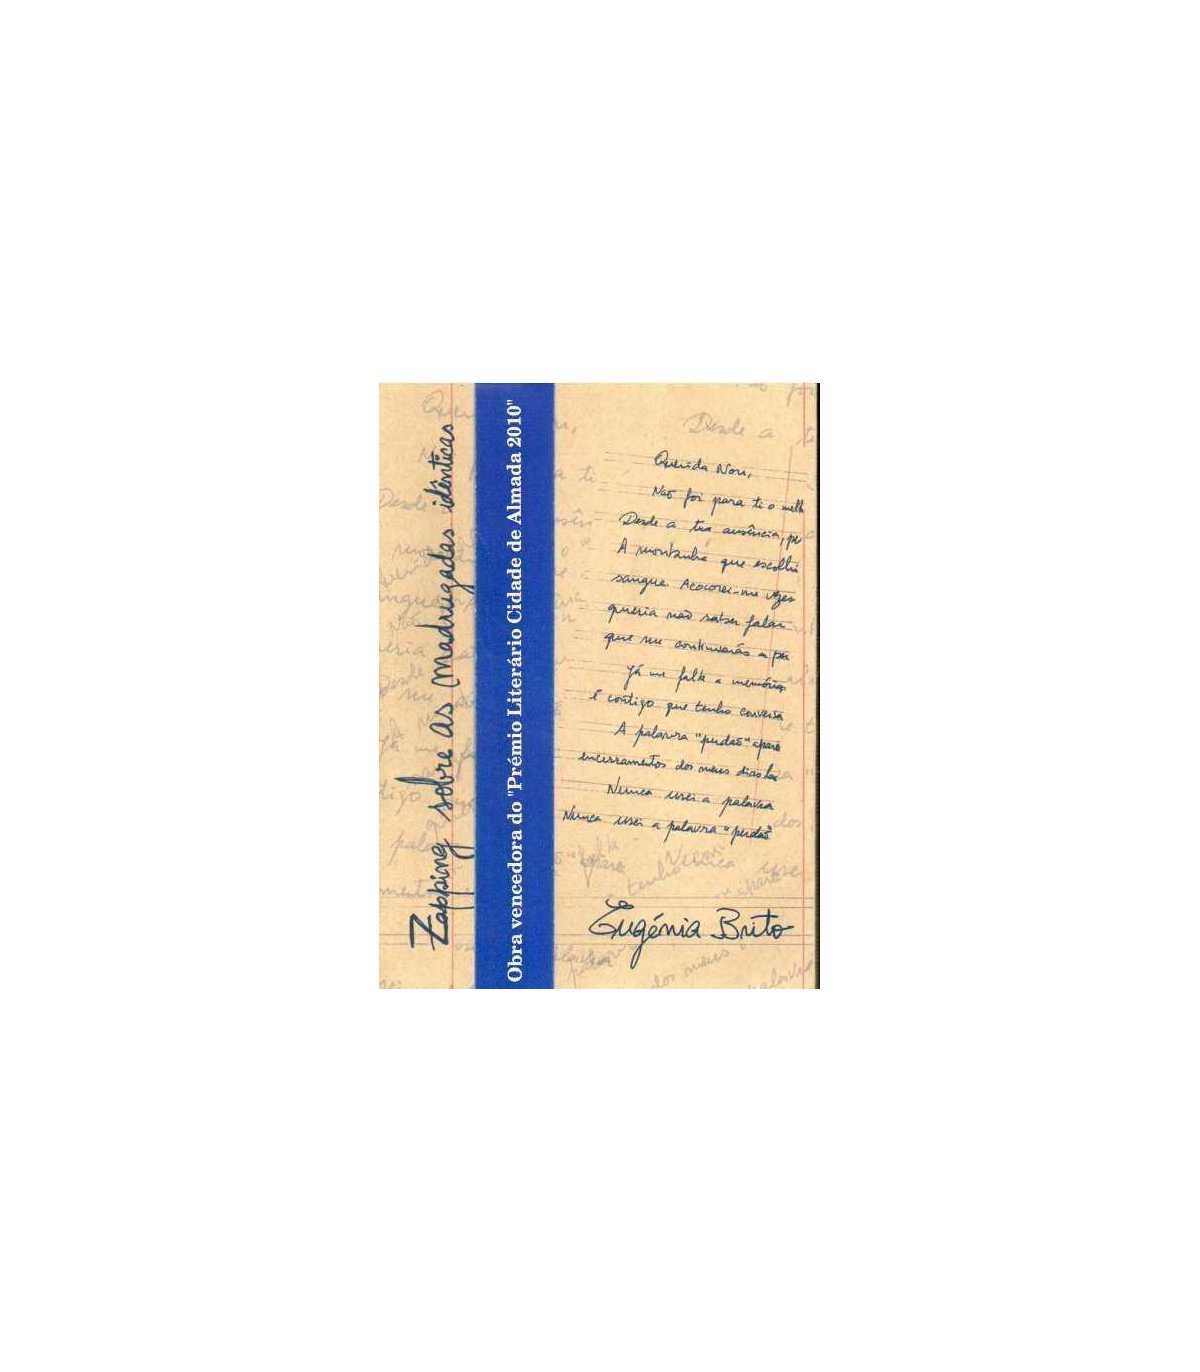 Zapping sobre as madrugadas idênticas
Obra vencedora do "Prémio Literário Cidade de Almada 2010"
Querida Nou,
Não foi para ti o melh
Desde a tua ausência, pe
A montanha que escolhi
sangue. Acocorei-me vezes
queria não saber falar
que me continuarás a per
Já me falta a memória
É contigo que tenho conversa
A palavra "perdão" apare
encerramentos dos meus dias
Nunca usei a palavra
Nunca usei a palavra "perdão"
Eugénia Brito